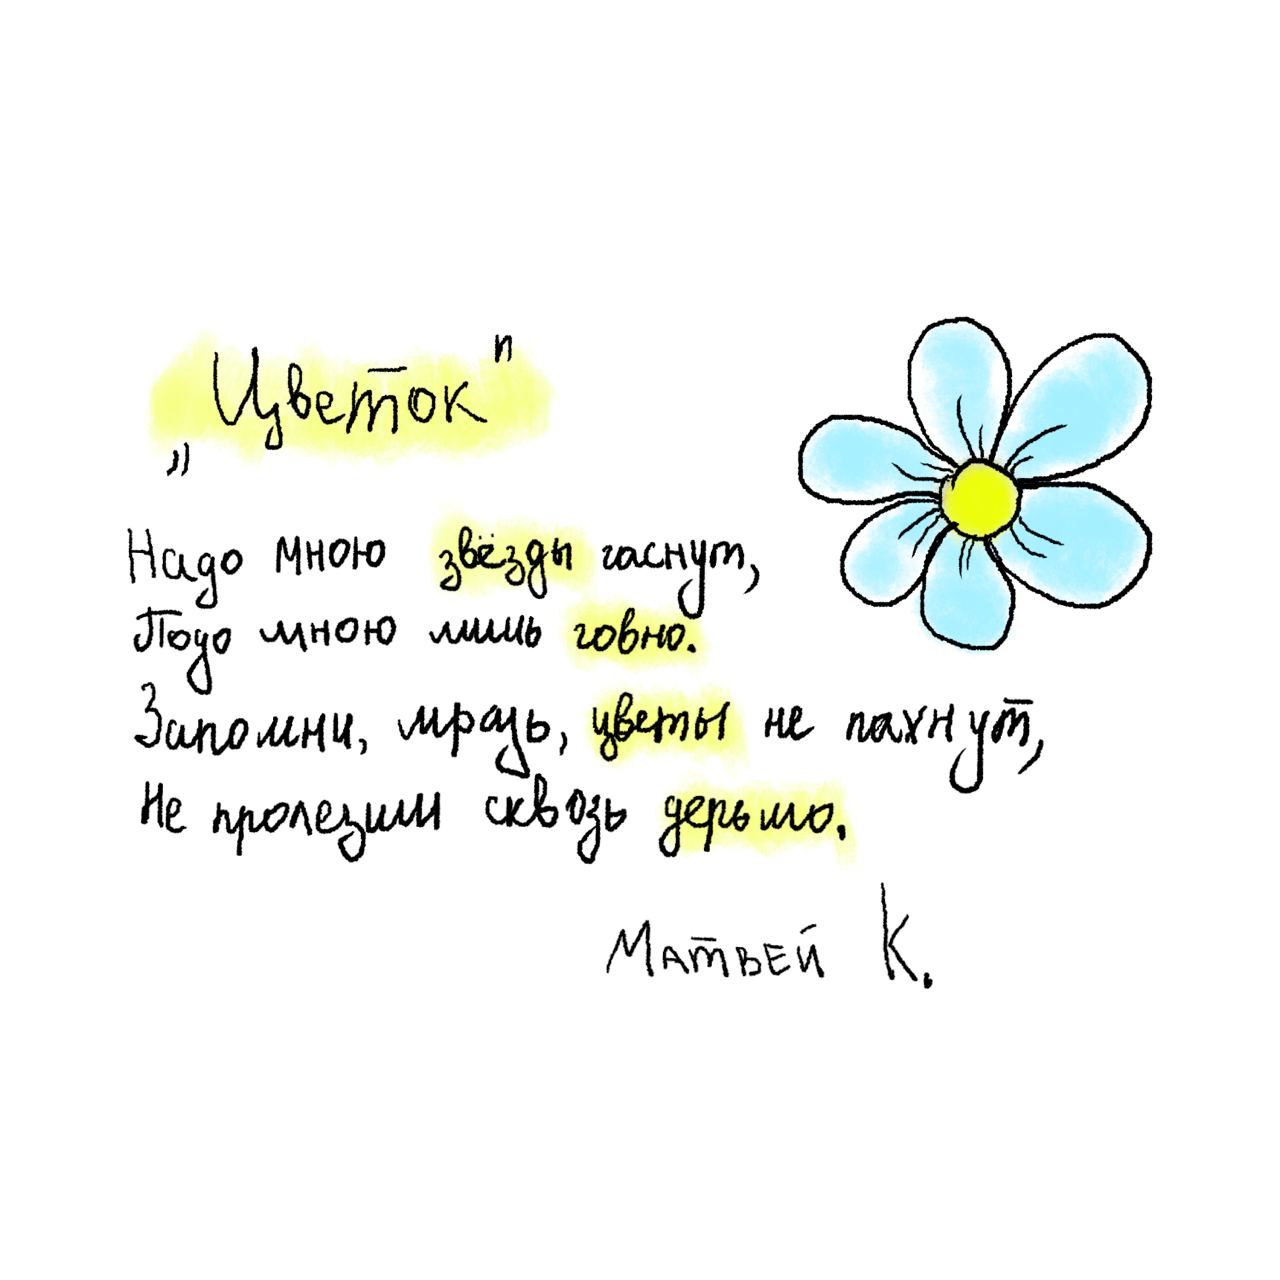 „Цветок"
Надо мною звёзды гаснут,
Подо мною лишь говно.
Запомни, мразь, цветы не пахнут,
Не пролезши сквозь дерьмо.
Матвей К.